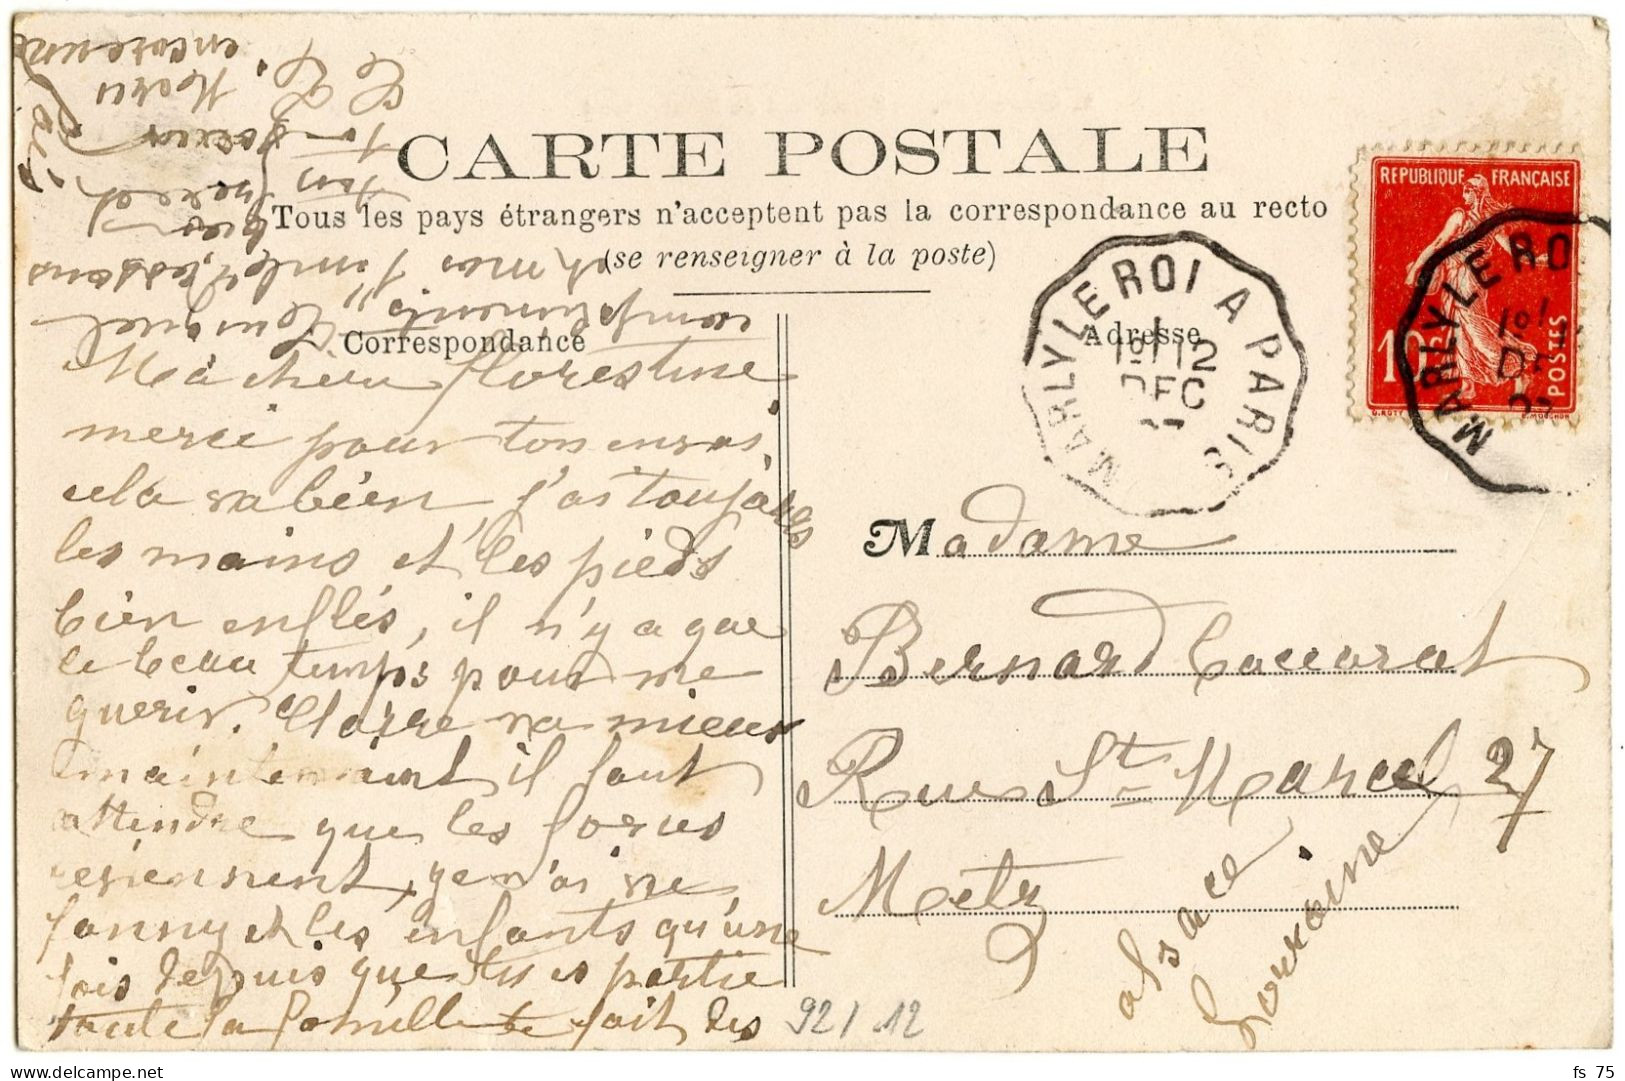 CARTE POSTALE
Tous les pays étrangers n'acceptent pas la correspondance au recto
(se renseigner à la poste)
Correspondance
Adresse
REPUBLIQUE FRANÇAISE
10
POSTES
O. ROTY
E. MOUCHON
MARLY LE ROI A PARIS
1
12
DEC
MARLY LE ROI
Ma chère Florestine
merci pour ton envoi,
cela va bien, j'ai toujours
les mains et les pieds
bien enflés, il n'y a que
le beau temps pour me
guérir. Claire va mieux
maintenant il faut
attendre que les forces
reviennent, je n'ai vu
Fanny et les enfants qu'une
fois depuis que tu es partie
toute la famille te fait des
compliments
encore une
fois
Madame
Bernard
Rue St Marcel 27
Metz
alsace
Lorraine
92 / 12
fs 75